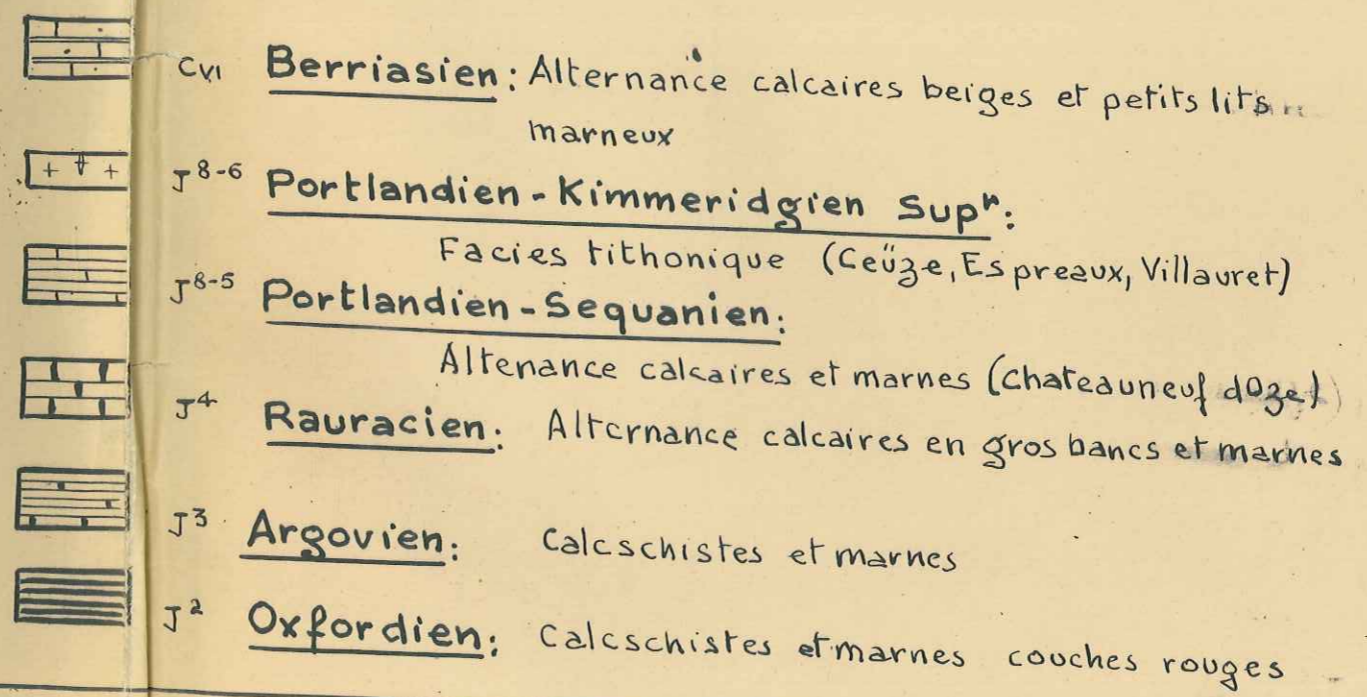 CVI Berriasien: Alternance calcaires beiges et petits lits
marneux
J8-6 Portlandien-Kimmeridgien Supr:
Facies tithonique (Ceüze, Espreaux, Villauret)
J8-5 Portlandien-Sequanien:
Altenance calcaires et marnes (chateauneuf dOze)
J4 Rauracien: Alternance calcaires en gros bancs et marnes
J3 Argovien: Calcschistes et marnes
J2 Oxfordien: Calcschistes et marnes couches rouges